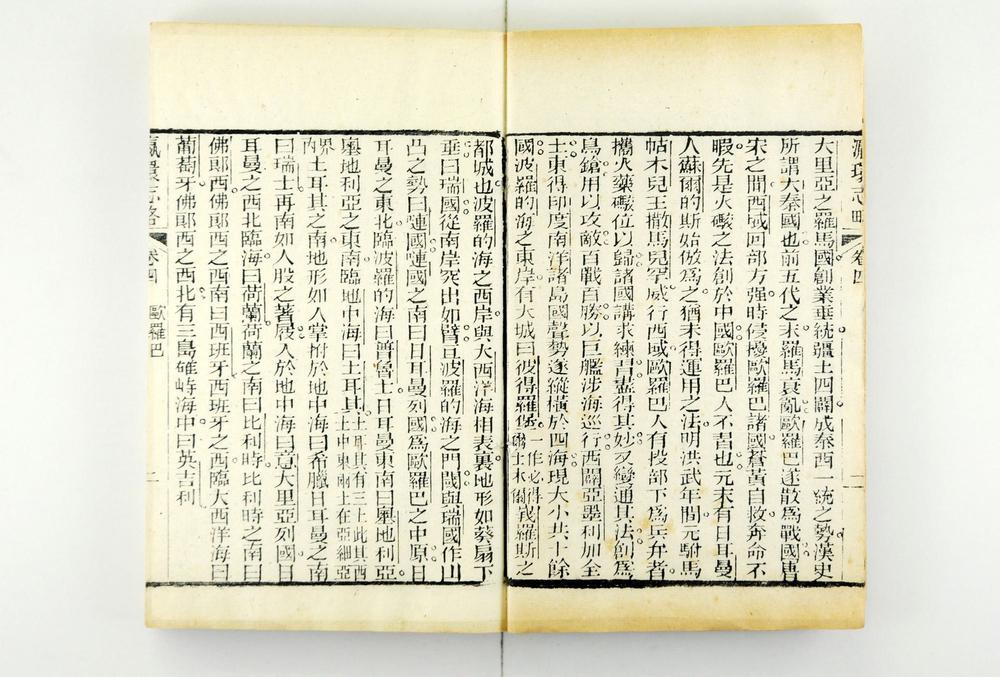 瀛環志略
卷四
二
大里亞之羅馬國創業垂統疆土四闢成泰西一統之勢漢史
所謂大秦國也前五代之末羅馬衰亂歐羅巴遂散爲戰國唐
宋之間西域回部方强時侵擾歐羅巴諸國蒼黃自救奔命不
暇先是火礮之法創於中國歐羅巴人不習也元末有日耳曼
人蘇爾的斯始倣爲之猶未得運用之法明洪武年間元駙馬
帖木兒王撒馬兒罕威行西域歐羅巴人有投部下爲兵弁者
攜火藥礮位以歸諸國講求練習盡得其妙又變通其法創爲
鳥鎗用以攻敵百戰百勝以巨艦涉海巡行西闢亞墨利加全
土東得印度南洋諸島國聲勢遂縱橫於四海現大小共十餘
國波羅的海之東岸有大城曰彼得羅堡一作必得爾士木爾峩羅斯之
都城也波羅的海之西岸與大西洋海相表裏地形如葵扇下
垂曰瑞國從南岸突出如臂亘波羅的海之門國與瑞國作凹
凸之勢曰嗹國嗹國之南曰日耳曼列國爲歐羅巴之中原日
耳曼之東北臨波羅的海曰普魯士日耳曼東南曰奧地利亞
奧地利亞之東南臨地中海曰土耳其土耳其有三土此其西土中東兩土在亞細亞
界內土耳其之南地形如人掌拊於地中海曰希臘日耳曼之南
曰瑞士再南如人股之著屐入於地中海曰意大里亞列國日
耳曼之西北臨海曰荷蘭荷蘭之南曰比利時比利時之南曰
佛郎西佛郎西之西南曰西班牙西班牙之西臨大西洋海曰
葡萄牙佛郎西之西北有三島雄峙海中曰英吉利
瀛環志略
卷四
歐羅巴
二